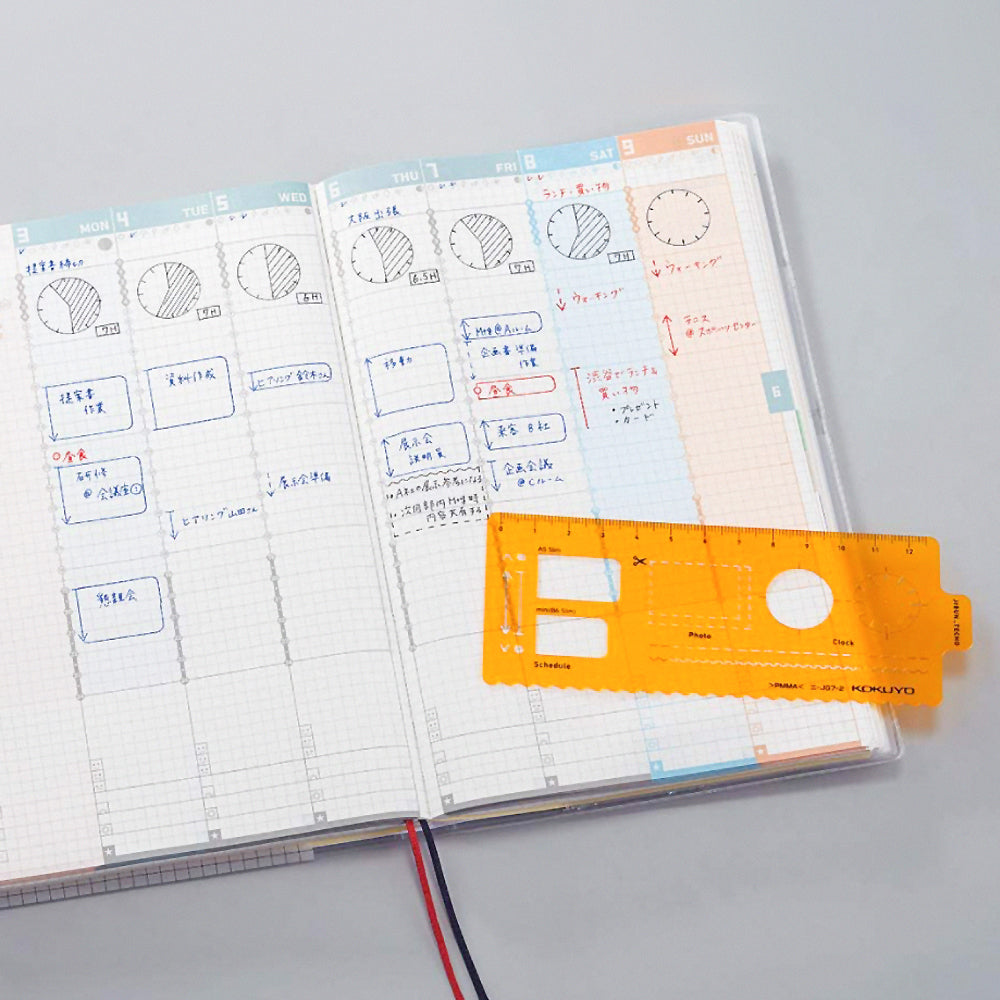 3 MON
提案書締切
7H
提案書
作業
昼食
研修
@ 会議室①
懇親会
4 TUE
7H
資料作成
ヒアリング 山田さん
5 WED
6H
ヒアリング 鈴木さん
展示会準備
6 THU
大阪出張
6.5H
移動
展示会
説明員
・A社の展示参考になる
・次回部内Mtg時
内容共有する
7 FRI
7H
Mtg @Aルーム
企画書準備
作業
昼食
来客 B社
企画会議
@Cルーム
8 SAT
ランチ・買い物
7H
ウォーキング
渋谷でランチ&
買い物
・プレゼント
・カード
9 SUN
ウォーキング
テニス
@スポーツセンター
6
0 1 2 3 4 5 6 7 8 9 10 11 12
A5 Slim
mini(B6 Slim)
Schedule
Photo
Clock
JIBUN_TECHO
>PMMA< ニ-JG7-2 KOKUYO